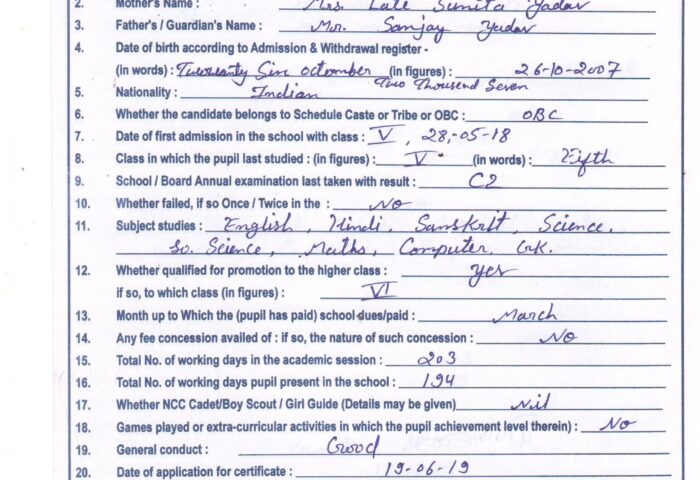 2. Mother's Name : Mrs. Late Sunita Yadav
3. Father's / Guardian's Name : Mr. Sanjay Yadav
4. Date of birth according to Admission & Withdrawal register -
(in words) : Twenty Six octomber (in figures) : 26-10-2007
Two Thousand Seven
5. Nationality : Indian
6. Whether the candidate belongs to Schedule Caste or Tribe or OBC : OBC
7. Date of first admission in the school with class : V , 28,-05-18
8. Class in which the pupil last studied : (in figures) : V (in words) : Fifth
9. School / Board Annual examination last taken with result : C2
10. Whether failed, if so Once / Twice in the : NO
11. Subject studies : English , Hindi , Sanskrit , Science.
So. Science , Maths , Computer. G.K.
12. Whether qualified for promotion to the higher class : yes
if so, to which class (in figures) : VI
13. Month up to Which the (pupil has paid) school dues/paid : March
14. Any fee concession availed of : if so, the nature of such concession : No
15. Total No. of working days in the academic session : 203
16. Total No. of working days pupil present in the school : 194
17. Whether NCC Cadet/Boy Scout / Girl Guide (Details may be given) Nil
18. Games played or extra-curricular activities in which the pupil achievement level therein) : No
19. General conduct : Good
20. Date of application for certificate : 19-06-19